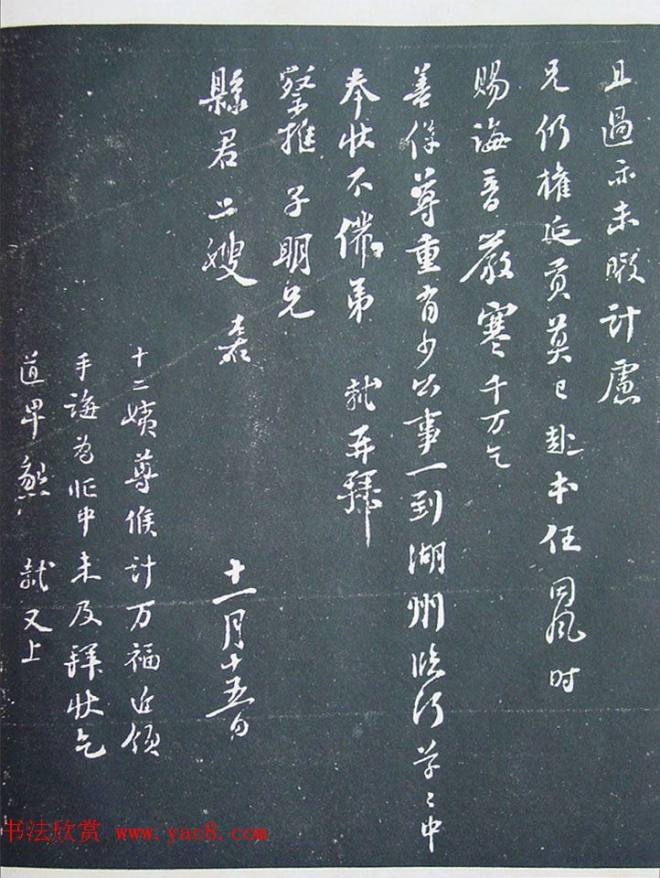 且過亦未暇計慮
兄仍權延貢莫已赴本任因風時
賜誨音嚴寒千万乞
善保尊重有少公事一到湖州臨行草〻中
奉狀不備弟 軾再拜
察推子明兄
縣君二嫂 十一月十五日
十二姨尊候計万福近領
手誨為忙中未及拜狀乞
道卑懇 軾又上
书法欣赏 www.yac8.com